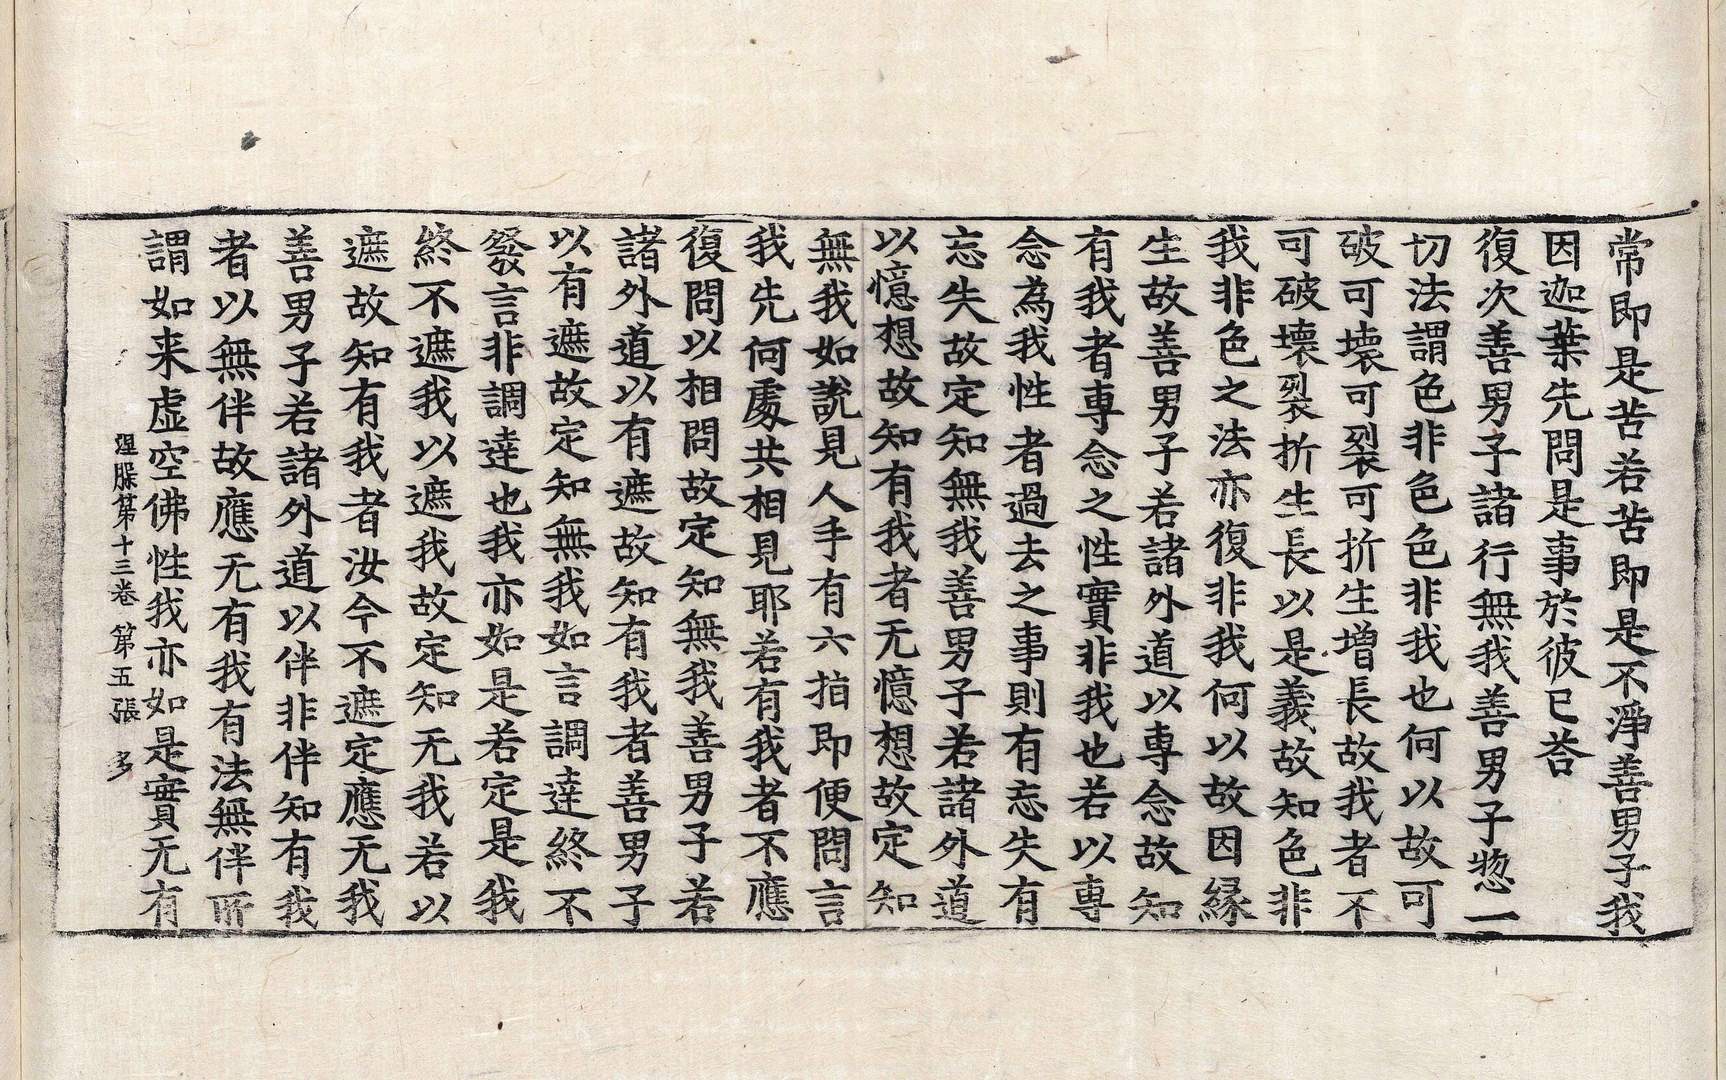 常即是苦若苦即是不淨善男子我
因迦葉先問是事於彼已荅
復次善男子諸行無我善男子惣一
切法謂色非色色非我也何以故可
破可壞可裂可折生增長故我者不
可破壞裂折生長以是義故知色非
我非色之法亦復非我何以故因緣
生故善男子若諸外道以專念故知
有我者專念之性實非我也若以專
念為我性者過去之事則有忘失有
忘失故定知無我善男子若諸外道
以憶想故知有我者无憶想故定知
無我如說見人手有六拍即便問言
我先何處共相見耶若有我者不應
復問以相問故定知無我善男子若
諸外道以有遮故知有我者善男子
以有遮故定知無我如言調達終不
發言非調達也我亦如是若定是我
終不遮我以遮我故定知无我若以
遮故知有我者汝今不遮定應无我
善男子若諸外道以伴非伴知有我
者以無伴故應无有我有法無伴所
謂如来虛空佛性我亦如是實无有
涅槃第十三卷 第五張 多